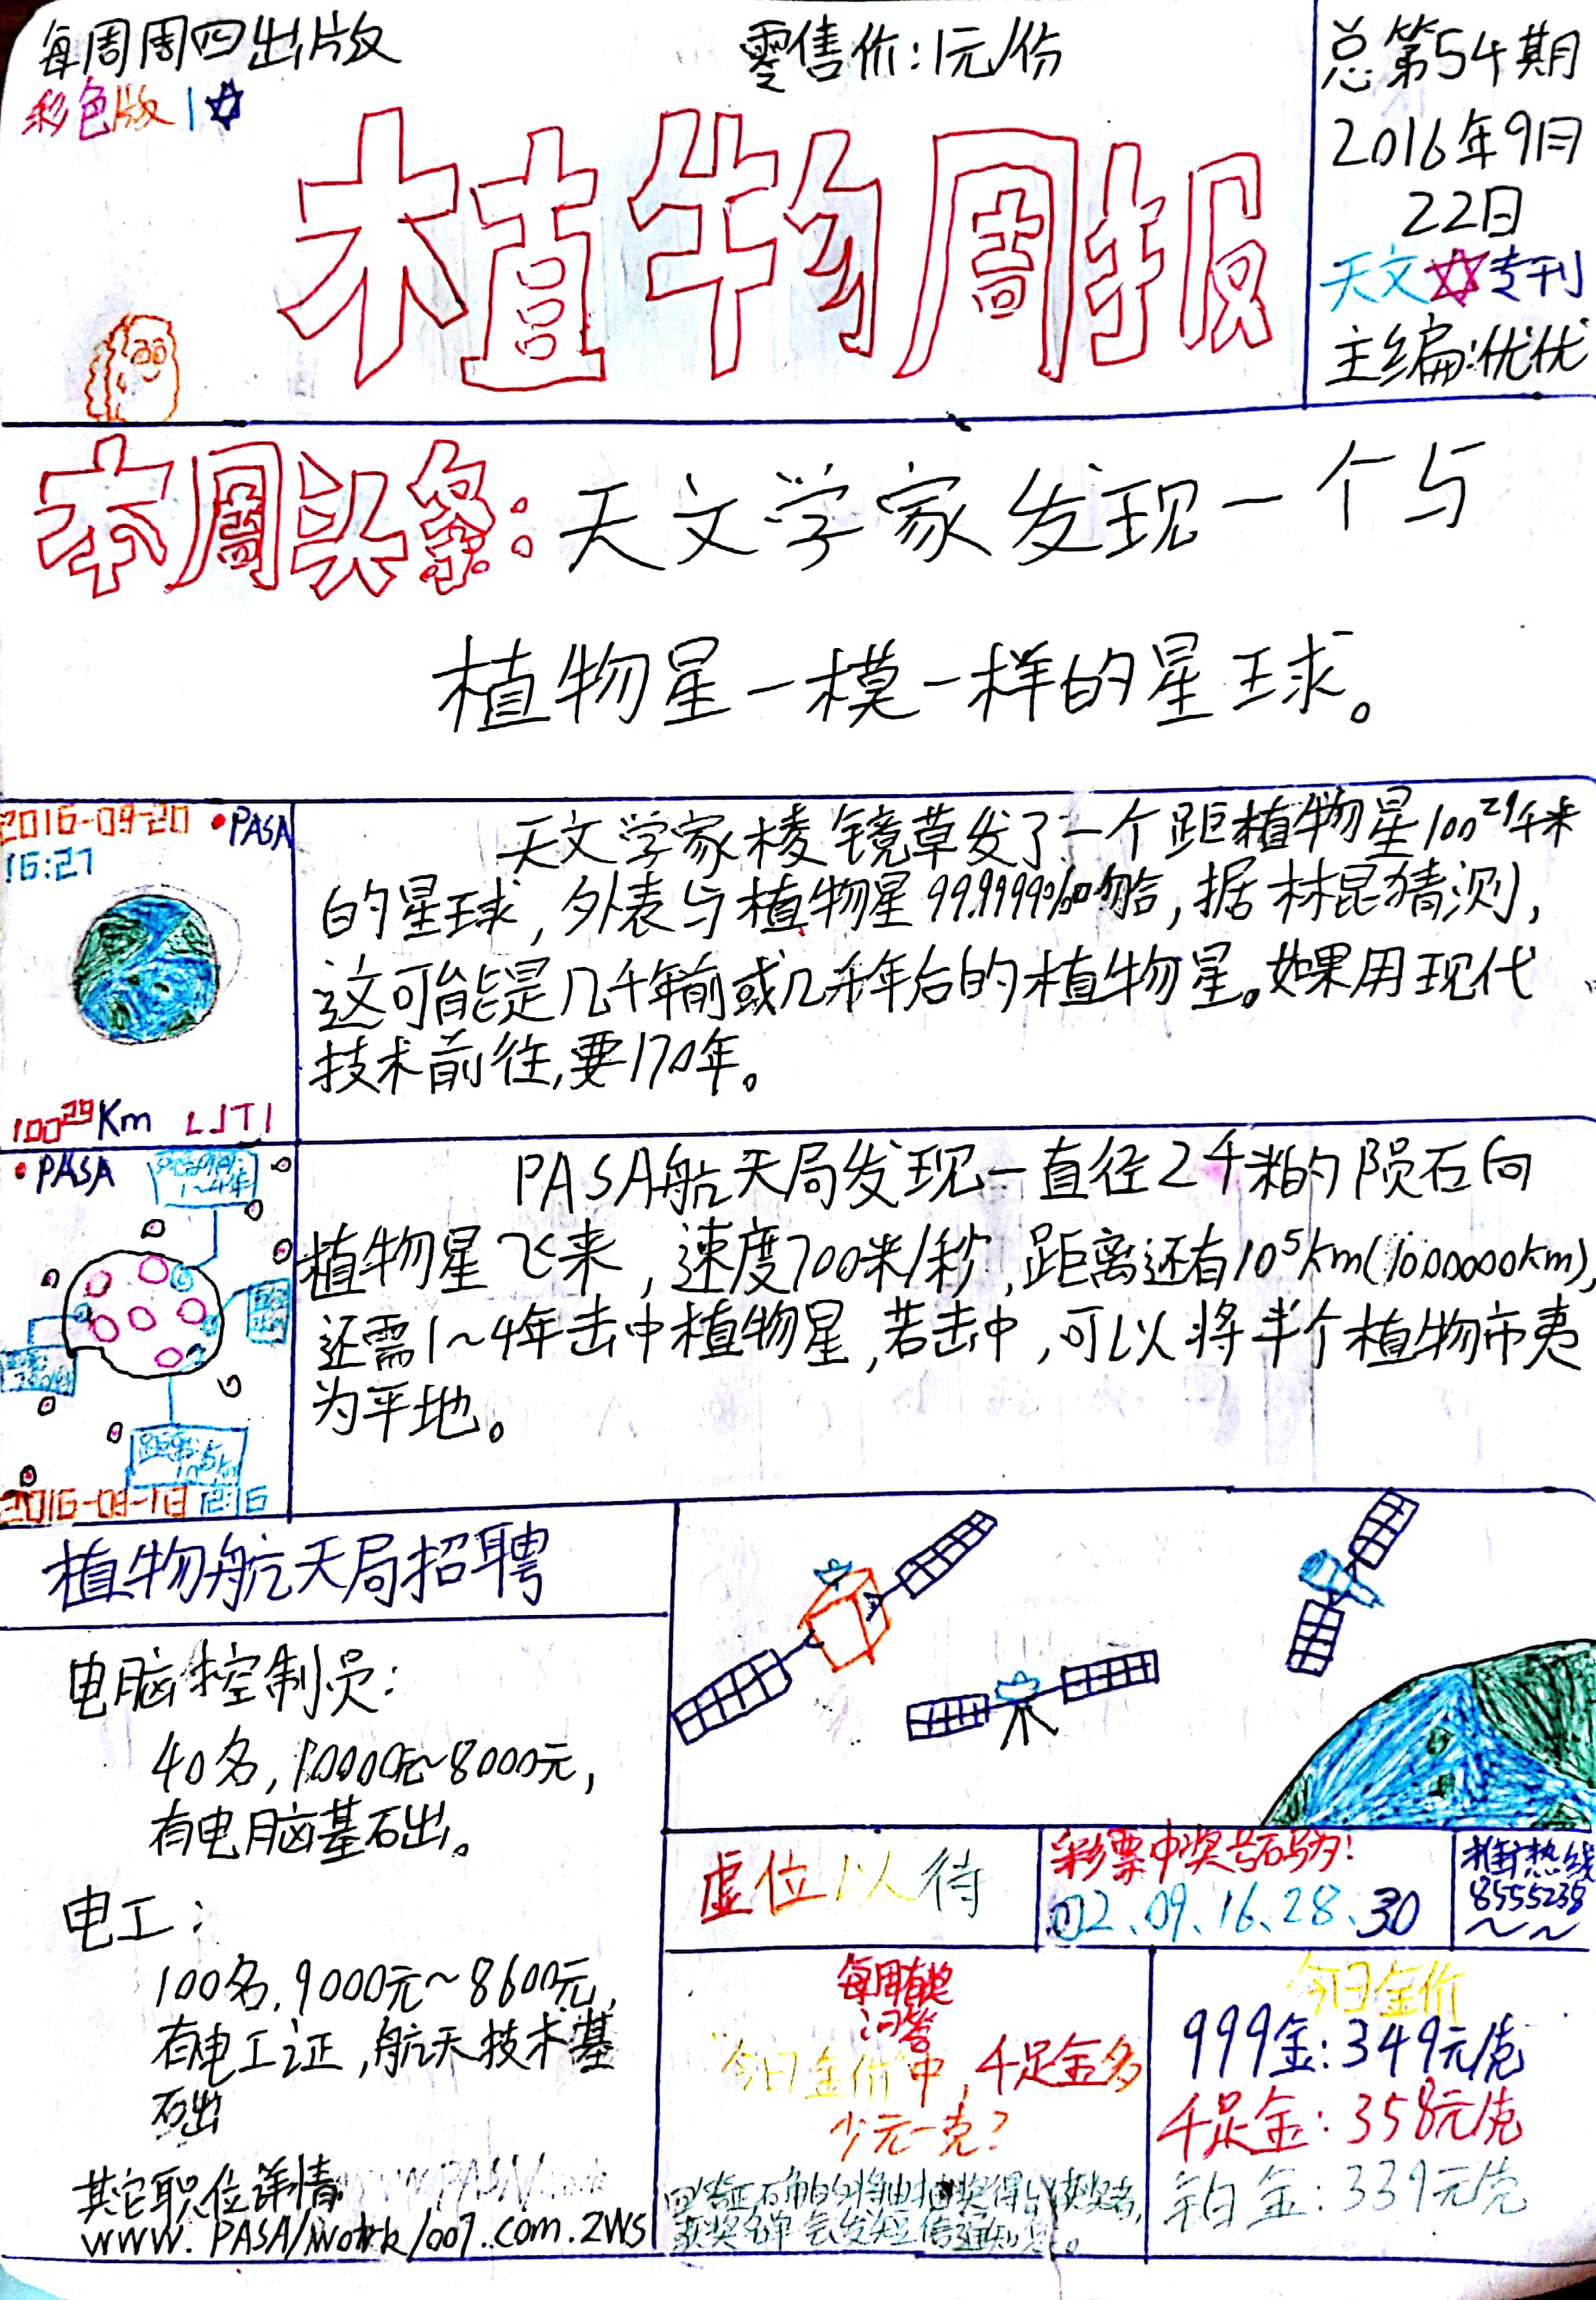 每周周四出版
彩色版1
零售价:1元/份
总第54期
2016年9月
22日
天文专刊
主编:优优
植物周报
本周头条:天文学家发现一个与
植物星一模一样的星球。
2016-09-20 PASA
16:27
100²⁹Km LJT1
天文学家棱镜草发了一个距植物星100²⁹千米
的星球,外表与植物星99.9999%吻合,据林昆猜测,
这可能是几千年前或几千年后的植物星。如果用现代
技术前往,要170年。
PASA
1~4年
12:16
PASA航天局发现一直径2千米的陨石向
植物星飞来,速度700米/秒,距离还有10⁵km(1000000km),
还需1~4年击中植物星,若击中,可以将半个植物市夷
为平地。
植物航天局招聘
电脑控制员:
40名,10000元~8000元,
有电脑基础。
电工:
100名,9000元~8600元,
有电工证,航天技术基
础
其它职位详情
www.PASA/work/007.com.zws
虚位以待
彩票中奖号码为:
02、09、16、28、30
热线
8555238
每周有奖
问答
"今日金价"中,千足金多
少元一克?
获奖名单会发短信通知。
今日金价
999金:349元/克
千足金:358元/克
铂金:339元/克